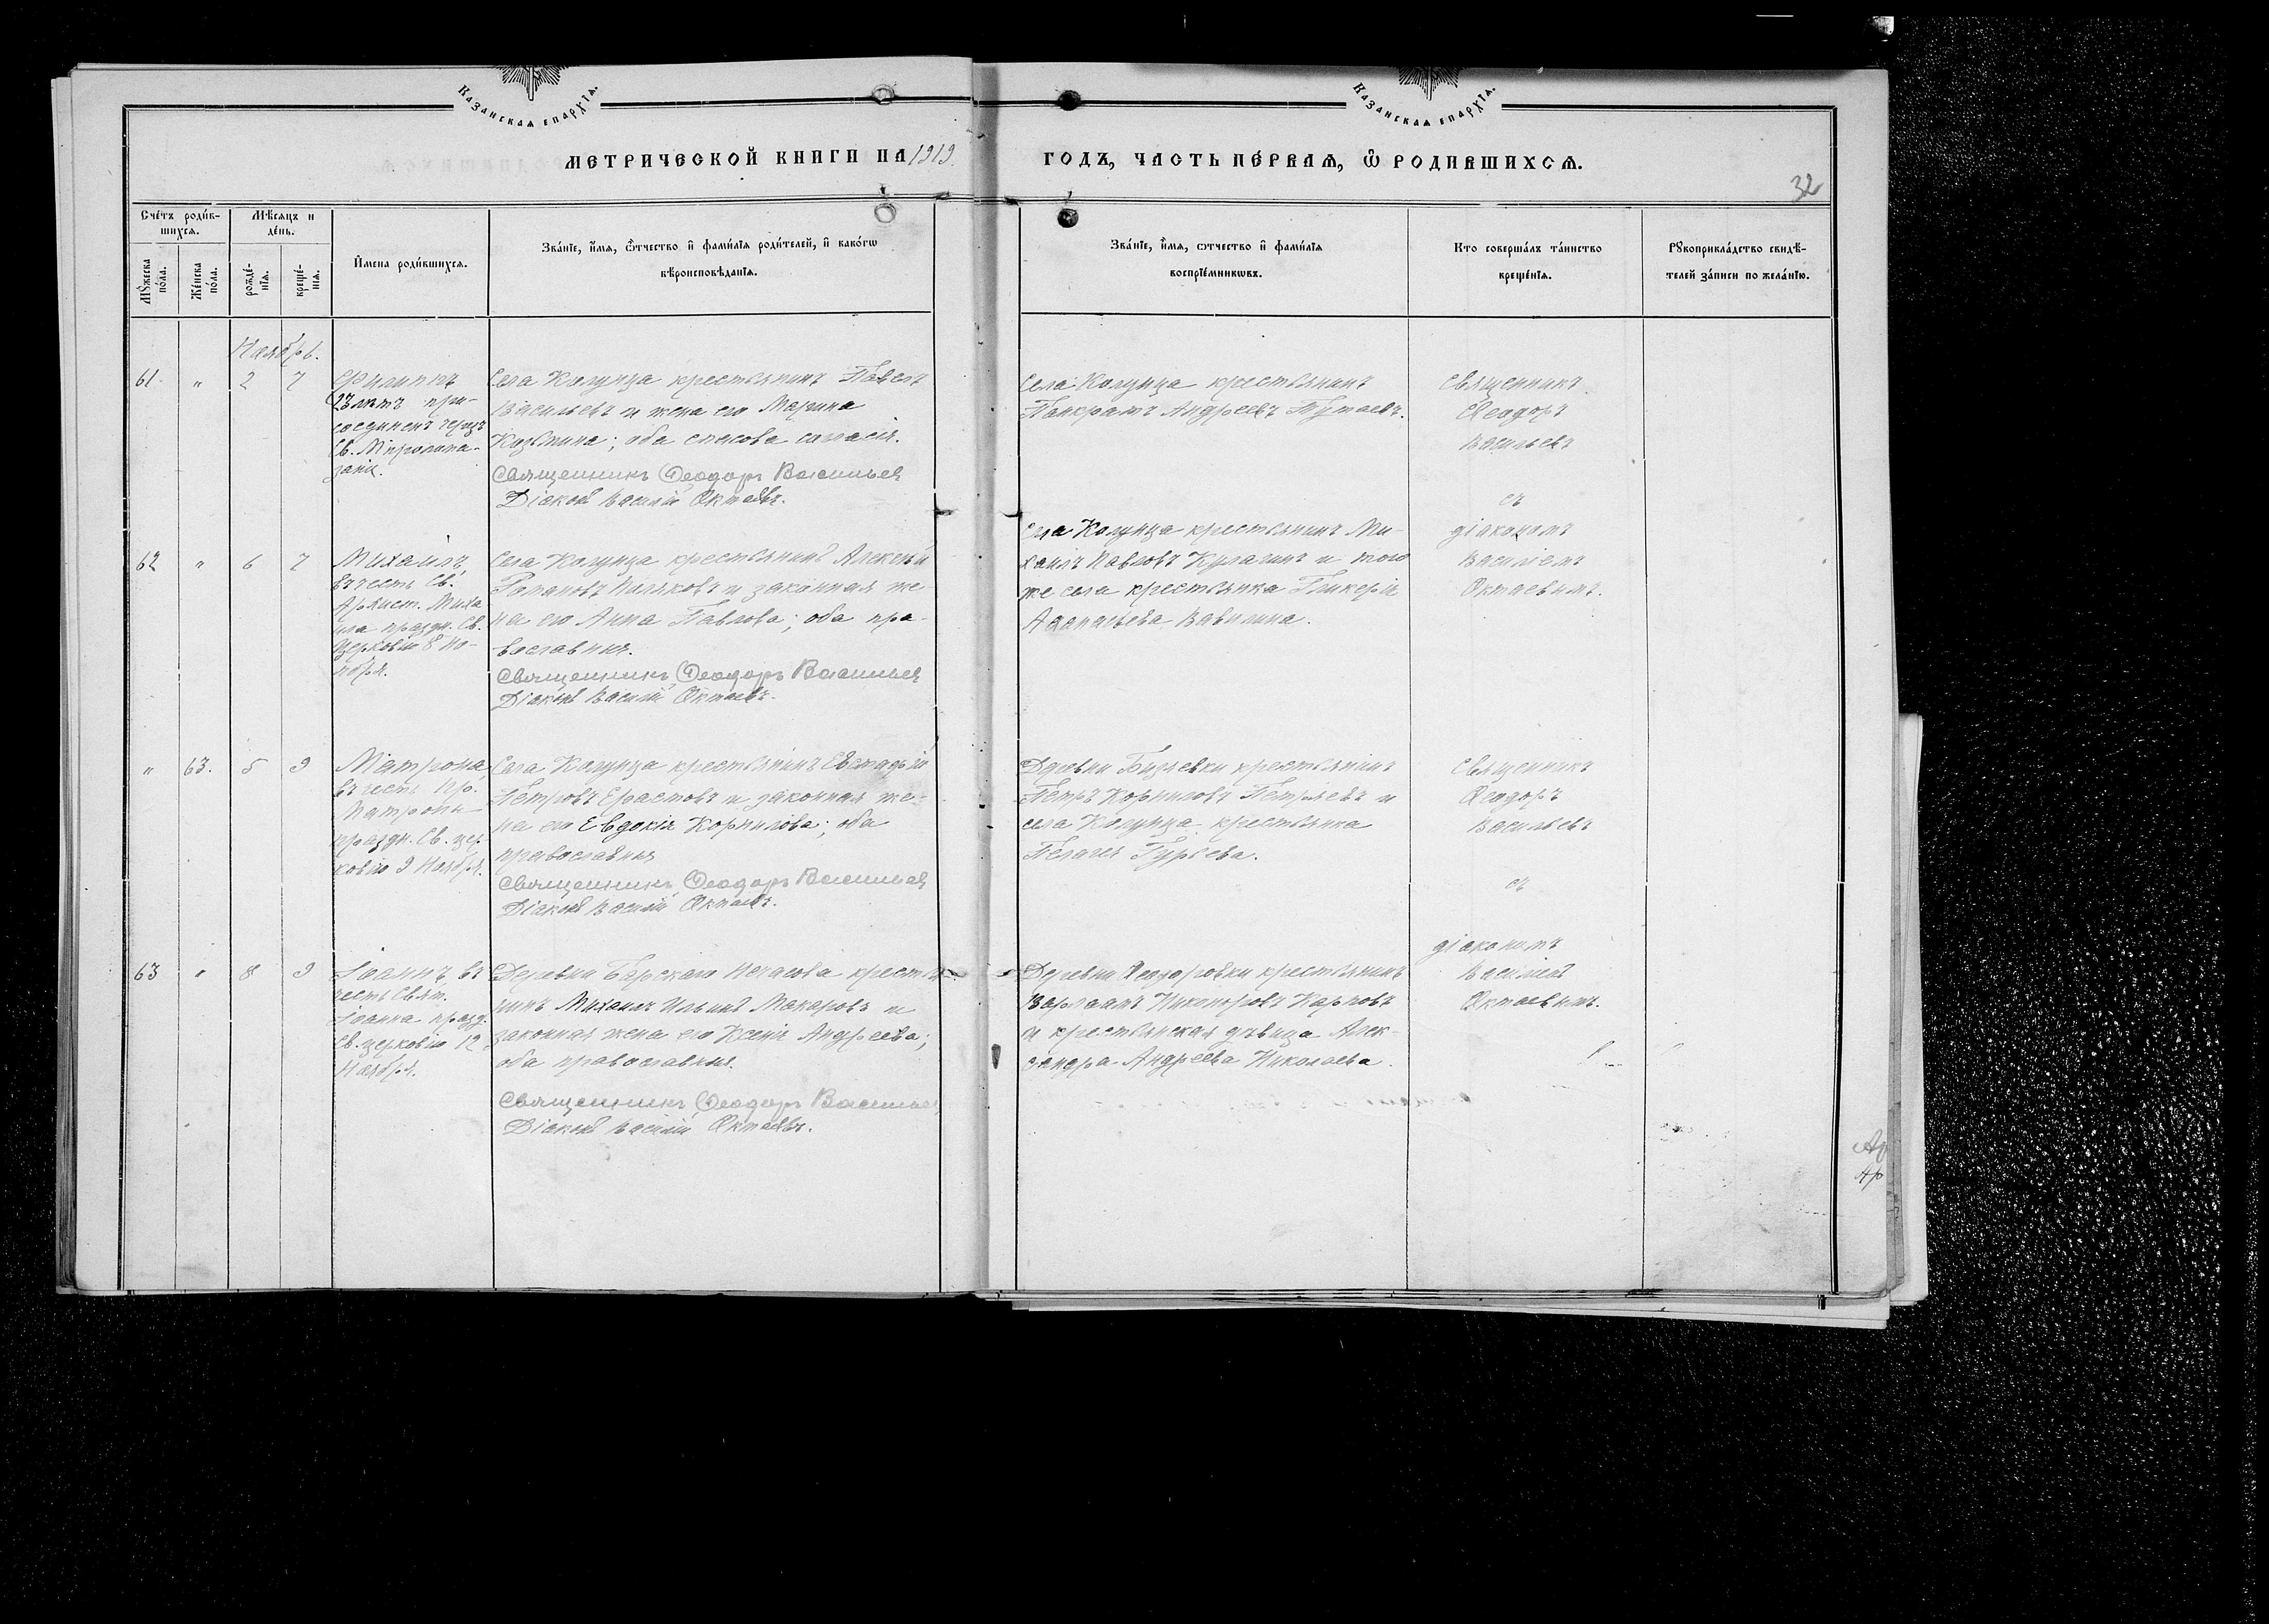 Казанская епархїя.
Казанская епархїя.
Метрической книги на 1919
годъ, часть пе́рвая, ѿ родившихся.
32
Сче́тъ роди́в-
шихся.
Мѣ́сяцъ и
де́нь.
Мꙋ́жеска
по́ла.
Же́нска
по́ла.
рожде́-
нїя.
креще́-
нїя.
И҆мена роди́вшихся.
Зва́нїе, и҆́мя, ѻ҆́тчество и҆ фами́лїя роди́телей, и҆ како́гѡ
вѣроисповѣ́данїя.
Зва́нїе, и҆́мя, ѻ҆тчество и҆ фами́лїя
воспрїе́мникѡвъ.
Кто соверша́лъ та́инство
креще́нїя.
Рꙋкоприкла́дство свидѣ́-
телей за́писи по жела́нїю.
Ноябрь.
61 " 2 7
Филиппъ
23 лѣтъ при-
соединенъ чрезъ
Св. Мѵропома-
заніи.
Села Колунца крестьянинъ Павелъ
Васильевъ и жена его Марина
Козьмина; оба спасова согласія.
Священникъ Ѳеодоръ Васильев
Діаконъ Василій Октаевъ.
Села Колунца крестьянинъ
Панкратъ Андреевъ Путаевъ.
Священникъ
Ѳеодоръ
Васильевъ
съ
діакономъ
Василіемъ
Октаевымъ.
62 " 6 7
Михаилъ,
въ честь Св.
Архист. Миха
ила праздн. Св.
Церковію 8 Но-
ября.
Села Колунца крестьянинъ Алексѣй
Романовъ Поляковъ и законная же
на его Анна Павлова; оба пра-
вославные.
Священникъ Ѳеодоръ Васильев
Діаконъ Василій Октаевъ.
Села Колунца крестьянинъ Ми-
хаилъ Павловъ Кулагинъ и того
же села крестьянка Гликерія
Аѳанасьева Вавилина.
" 63. 5 9
Матрона,
въ честь Пр.
Матроны
праздн. Св. цер
ковію 9 Ноября.
Села Колунца крестьянинъ
Петровъ Ерастовъ и законная же-
на его Евдокія Корнилова; оба
православные
Священникъ Ѳеодоръ Васильев
Діаконъ Василій Октаевъ.
Деревни крестьянинъ
Петръ Корниловъ и
села Колунца крестьянка
Пелагея Гурьева.
Священникъ
Ѳеодоръ
Васильевъ
съ
діакономъ
Василіемъ
Октаевымъ.
63 " 8 9
Іоаннъ, въ
честь Свят.
Іоанна празд.
Св. церковію 12
Ноября.
Деревни Барскаго крестья-
нинъ Михаилъ Ильинъ Макаровъ и
законная жена его Ксенія Андреева;
оба православные.
Священникъ Ѳеодоръ Васильев
Діаконъ Василій Октаевъ.
Деревни Ѳедоровки крестьянинъ
Варлаамъ Никоноровъ Карповъ
и крестьянская дѣвица Алек-
сандра Андреева Николаева.